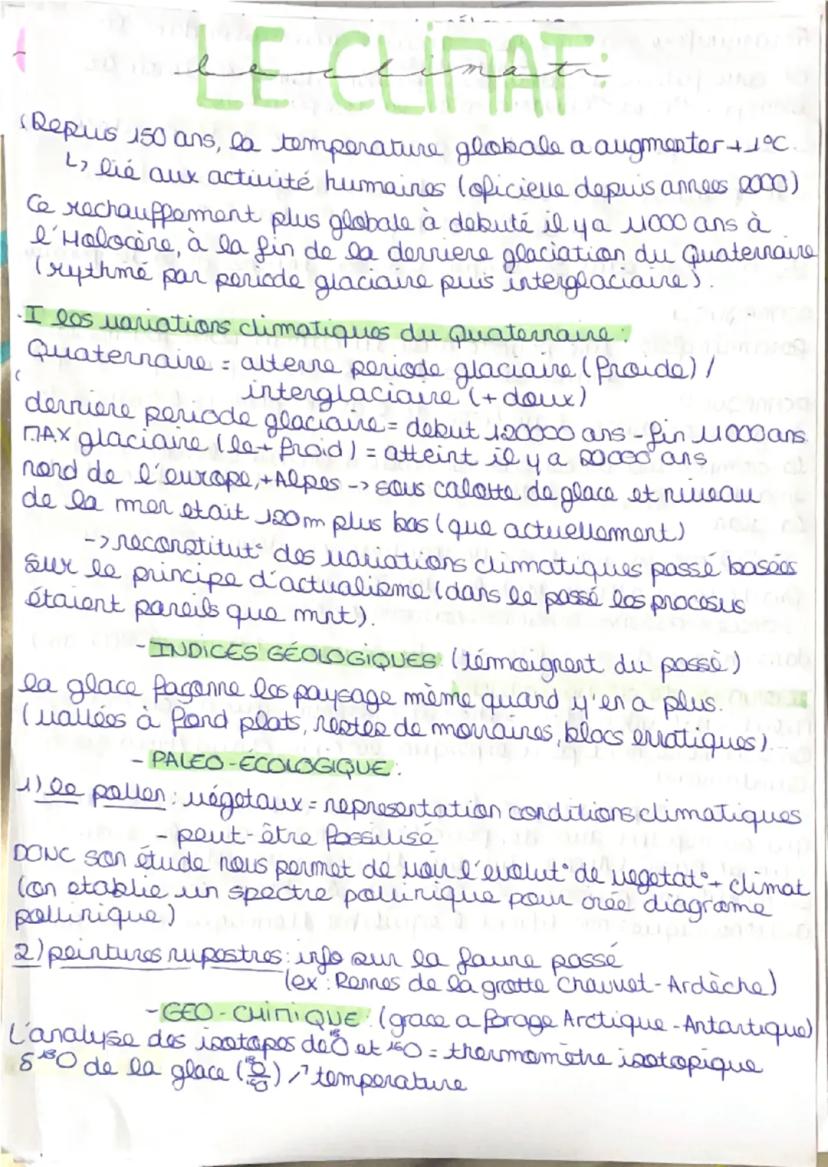 LE CLIMAT:
le climat:
(Depuis 150 ans, la temperature globale a augmenter +1°C.
↳ lié aux activité humaines (oficielle depuis annees 2000)
Ce rechauffement plus globale à debuté il y a 11000 ans à
l'Holocène, à la fin de la derniere glaciation du Quaternaire
(rythmé par periode glaciaire puis interglaciaire).
I les variations climatiques du Quaternaire:
Quaternaire = alterne periode glaciaire (froide) /
interglaciaire (+ doux)
derniere periode glaciaire = debut 120000 ans - fin 11000 ans
MAX glaciaire (le + froid) = atteint il y a 20000 ans
nord de l'europe, + Alpes -> sous calotte de glace et niveau
de la mer etait 120m plus bas (que actuellement)
-> reconstitut° des variations climatiques passé basées
sur le principe d'actualisme (dans le passé les procesus
étaient pareils que mtnt).
- INDICES GÉOLOGIQUES: (témoignent du passé)
la glace façonne les paysage même quand y'en a plus.
(vallées à fond plats, restes de morraines, blocs erratiques)...
- PALEO-ECOLOGIQUE:
1) le pollen: végetaux = representation conditions climatiques
peut-être fossilisé
DONC son étude nous permet de voir l'evolut° de vegetat° - climat
(on etablie un spectre pollinique pour créel diagrame
pollinique)
2) peintures rupestres: info sur la faune passé
(ex: Rennes de la grotte Chauvet - Ardèche)
- GEO-CHIMIQUE: (grace a forage Arctique - Antartique)
L'analyse des isotopes de ¹⁸O et ¹⁶O = thermometre isotopique
δ¹⁸O de la glace (¹⁸O/¹⁶O) ↗ temperature